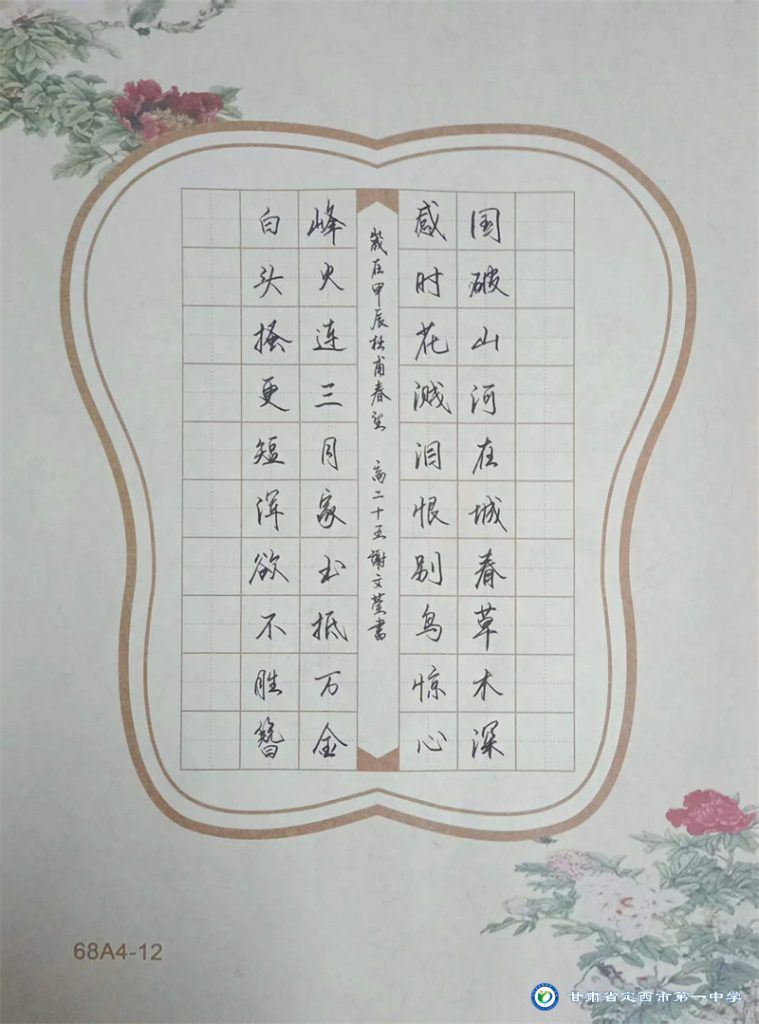 国破山河在城春草木深
感时花溅泪恨别鸟惊心
岁在甲辰杜甫春望 高二十五谢文莹书
峰火连三月家书抵万金
白头搔更短浑欲不胜簪
68A4-12
甘肃省定西市第一中学